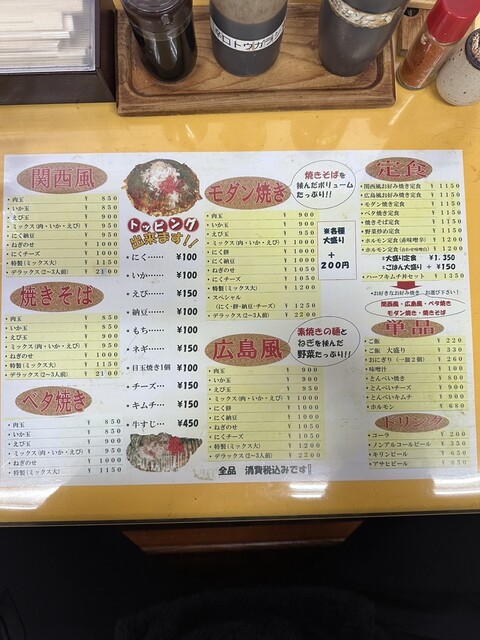 辛口トウガラシ
関西風
・肉玉 ¥ 850
・いか玉 ¥ 850
・えび玉 ¥ 900
・ミックス(肉・いか・えび) ¥ 950
・にく納豆 ¥ 950
・ねぎのせ ¥ 1000
・にくチーズ ¥ 1000
・特製(ミックス大) ¥ 1150
・デラックス(2~3人前) ¥ 2100
焼きそば
・肉玉 ¥ 850
・いか玉 ¥ 850
・えび玉 ¥ 900
・ミックス(肉・いか・えび) ¥ 950
・ねぎのせ ¥ 1000
・特製(ミックス大) ¥ 1150
・デラックス(2~3人前) ¥ 2100
ベタ焼き
・肉玉 ¥ 850
・いか玉 ¥ 850
・えび玉 ¥ 900
・ミックス(肉・いか・えび) ¥ 950
・ねぎのせ ¥ 1000
・特製(ミックス大) ¥ 1150
トッピング
出来ます!!
・にく…… ¥100
・いか…… ¥100
・えび…… ¥150
・納豆…… ¥100
・もち…… ¥100
・ネギ…… ¥150
・目玉焼き1個 ¥100
・チーズ… ¥150
・キムチ… ¥150
・牛すじ… ¥450
モダン焼き
焼きそばを
挟んだボリューム
たっぷり!!
・肉玉 ¥ 900
・いか玉 ¥ 900
・えび玉 ¥ 950
・ミックス(肉・いか・えび) ¥ 1000
・にく餅 ¥ 1000
・にく納豆 ¥ 1000
・ねぎのせ ¥ 1050
・にくチーズ ¥ 1050
・特製(ミックス大) ¥ 1200
・スペシャル
(にく・餅・納豆・チーズ) ¥ 1250
・デラックス(2~3人前) ¥ 2200
※各種
大盛り
+
200円
広島風
素焼きの麺と
ねぎを挟んだ
野菜たっぷり!!
・肉玉 ¥ 900
・いか玉 ¥ 900
・えび玉 ¥ 950
・ミックス(肉・いか・えび) ¥ 1000
・にく餅 ¥ 1000
・にく納豆 ¥ 1000
・ねぎのせ ¥ 1050
・にくチーズ ¥ 1050
・特製(ミックス大) ¥ 1200
・デラックス(2~3人前) ¥ 2200
全品 消費税込みです!
定食
・関西風お好み焼き定食 ¥ 1150
・広島風お好み焼き定食 ¥ 1150
・モダン焼き定食 ¥ 1150
・ベタ焼き定食 ¥ 1150
・焼きそば定食 ¥ 1150
・野菜炒め定食 ¥ 1150
・ホルモン定食(赤味噌辛) ¥ 1200
・ホルモン定食(白わせ味噌) ¥ 1200
※大盛り定食 ¥1,350
※ごはん大盛り + ¥150
・ハーフキムチ丼セット ¥ 1350
・お好きなお好み焼き お選び下さい!
関西風・広島風・ベタ焼き
モダン焼き・焼きそば
単品
・ご飯 ¥ 220
・ご飯 大盛り ¥ 330
・おにぎり(一皿2個) ¥ 260
・味噌汁 ¥ 100
・とんぺい焼き ¥ 800
・とんぺいチーズ ¥ 900
・とんぺいキムチ ¥ 900
・ホルモン ¥ 680
ドリンク
・コーラ ¥ 200
・ノンアルコールビール ¥ 350
・キリンビール ¥ 650
・アサヒビール ¥ 650